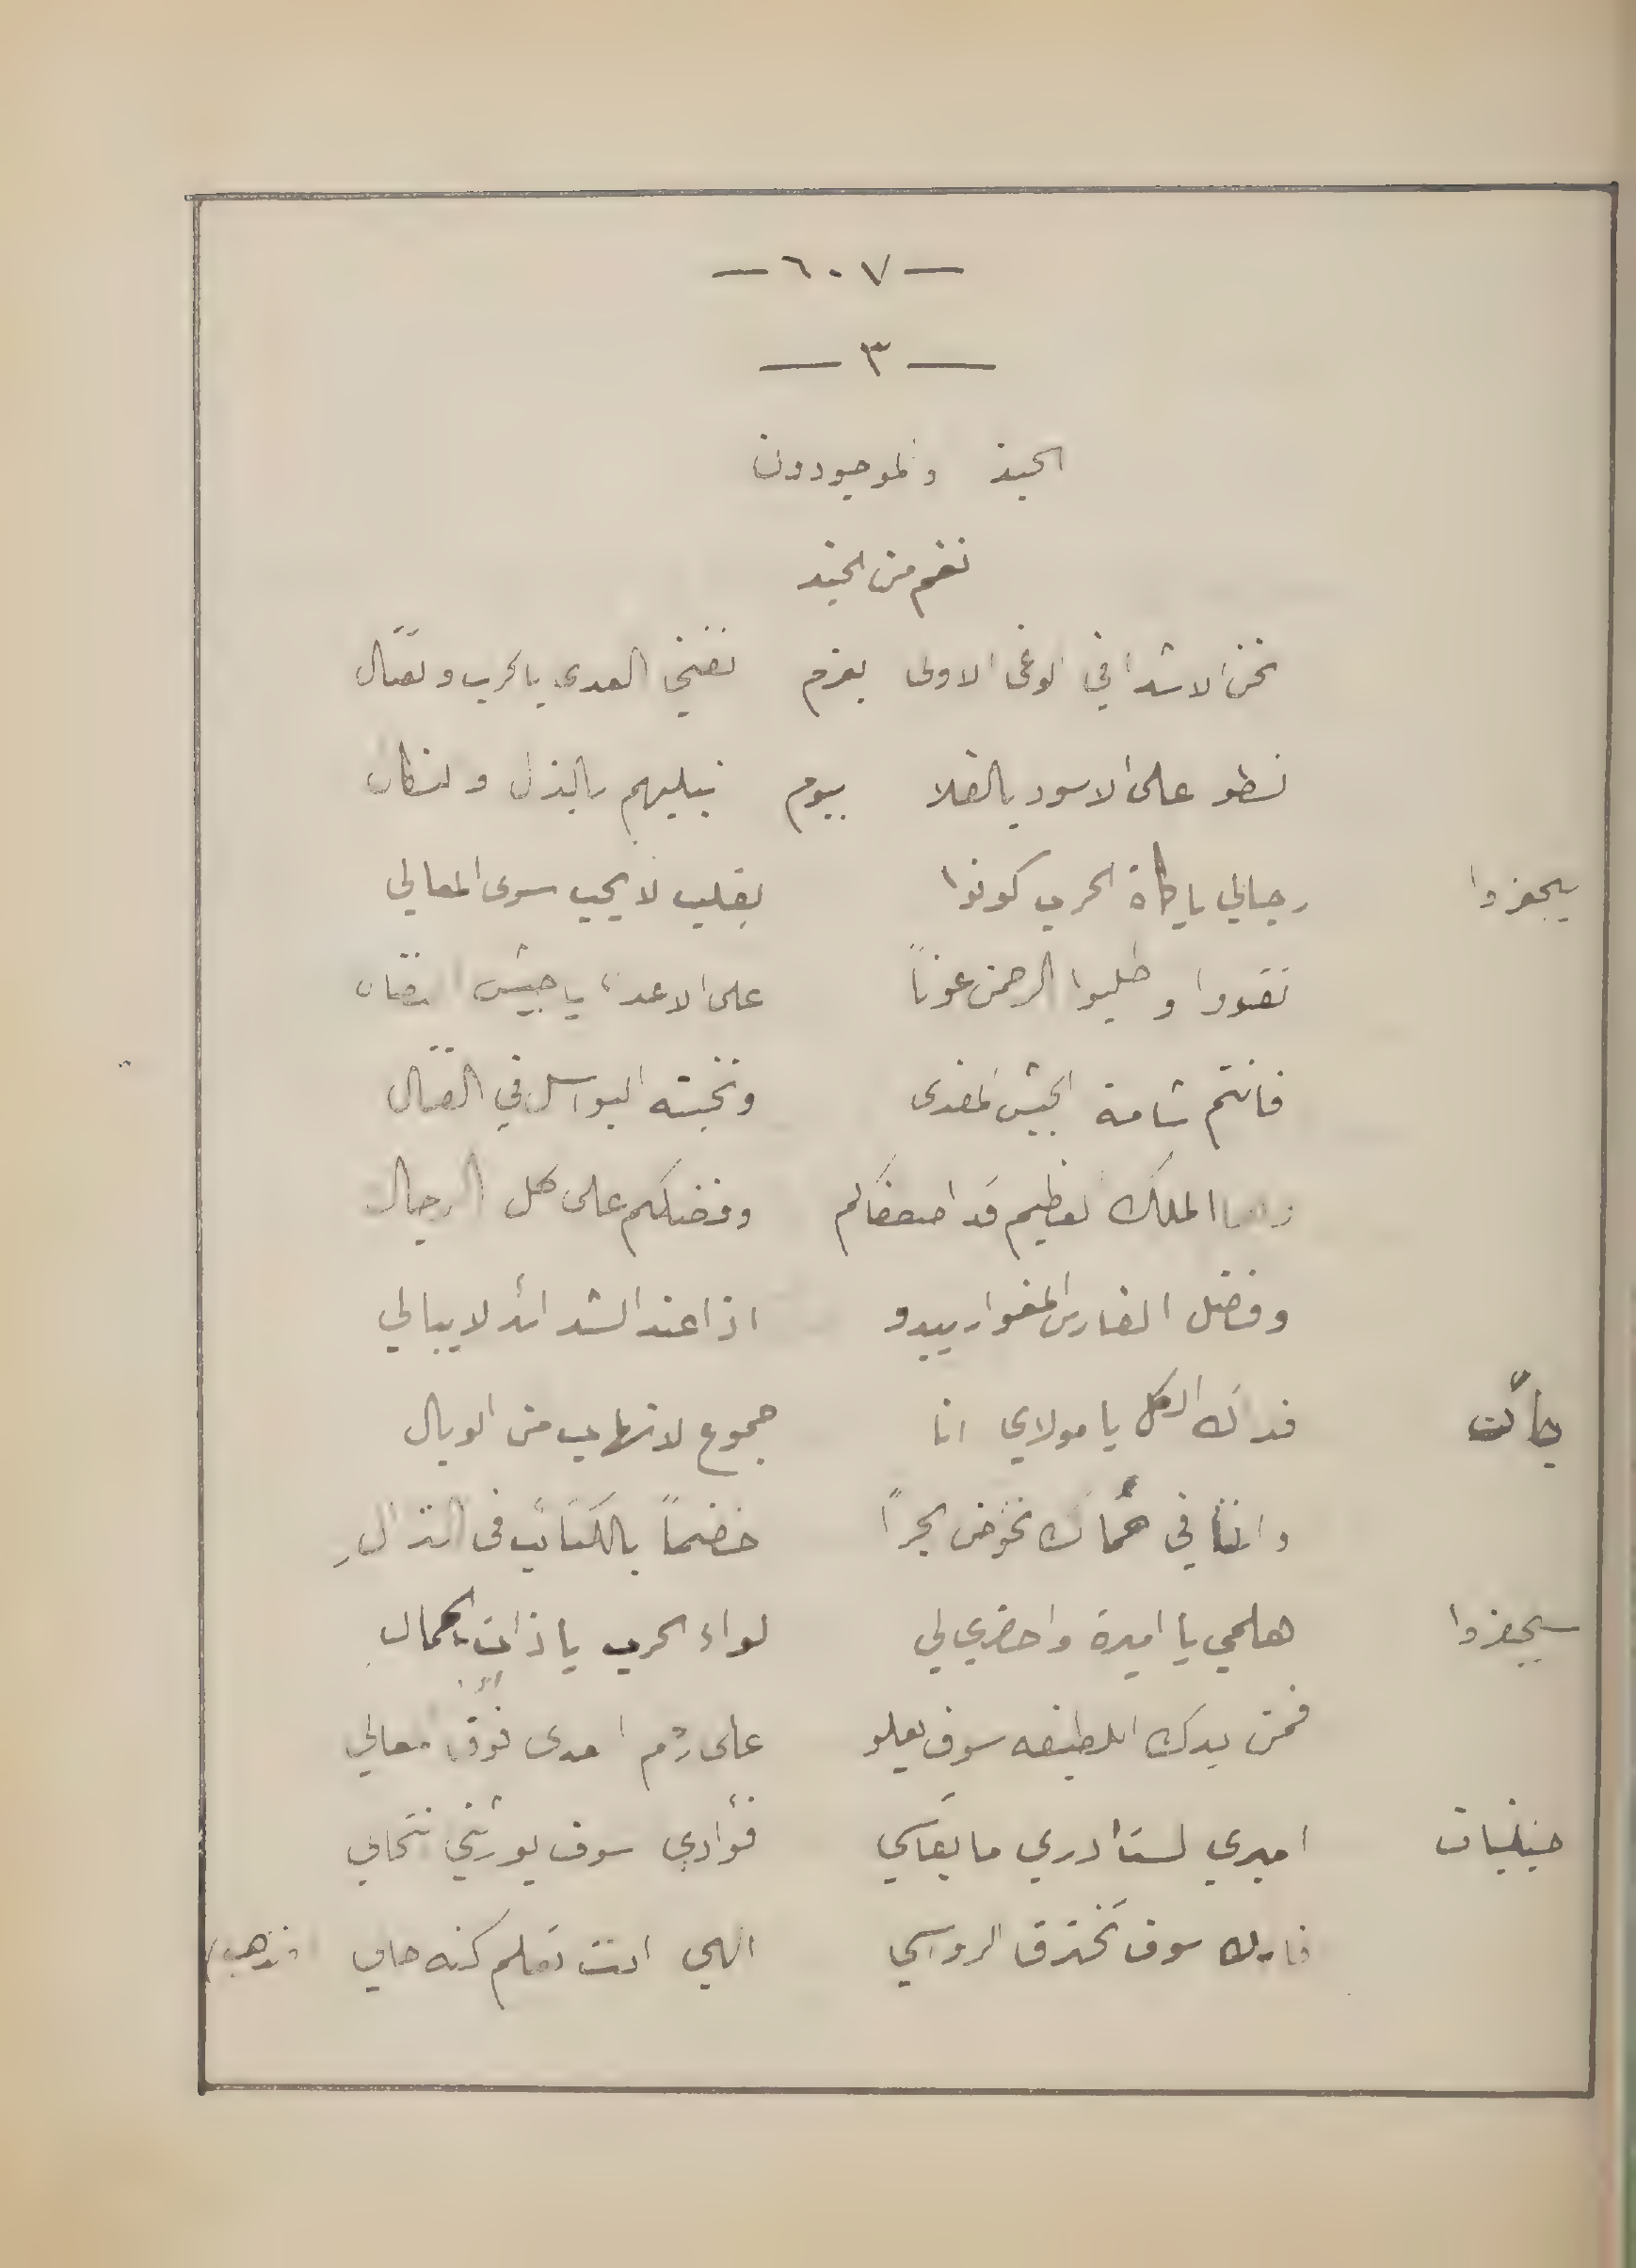 — ٦٠٧ —
— ٣ —
الجند والموجودون
نغم من الجند
نحن الاشدا في الوغى الاولى بعزم نفني العدى بالحرب والقتال
نسطو على الاسود بالفلا بيوم نبليهم بالذل والنكال
سيجفروا رجالي يا كماة الحرب كونوا بقلب لا يحب سوى المعالي
تقووا واطلبوا الرحمن عوناً على الاعداء يا جيش النضال
فانتم شامة الجيش المفدى ونخبته البواسل في القتال
الملك العظيم قد اصطفاكم وفضلكم على كل الرجال
وفضل الفارس المغوار يبدو اذا عند الشدائد لا يبالي
فداك الكل يا مولاي انا جموع لا تهاب من الوبال
واننا في حماك نخوض بحراً خضماً بالكتائب في النزالِ
سيجفروا هلمي يا اميرة واحضري لي لواء الحرب يا ذات الجمال
فمن يدك اللطيفه سوف يعلو على رغم العدى فوق المعالي
اميري لست ادري ما يقاسي فؤادي سوف يورثني انتحالي
سوف تخترق الرواسي الهي انت تعلم كنه حالي (تذهب)